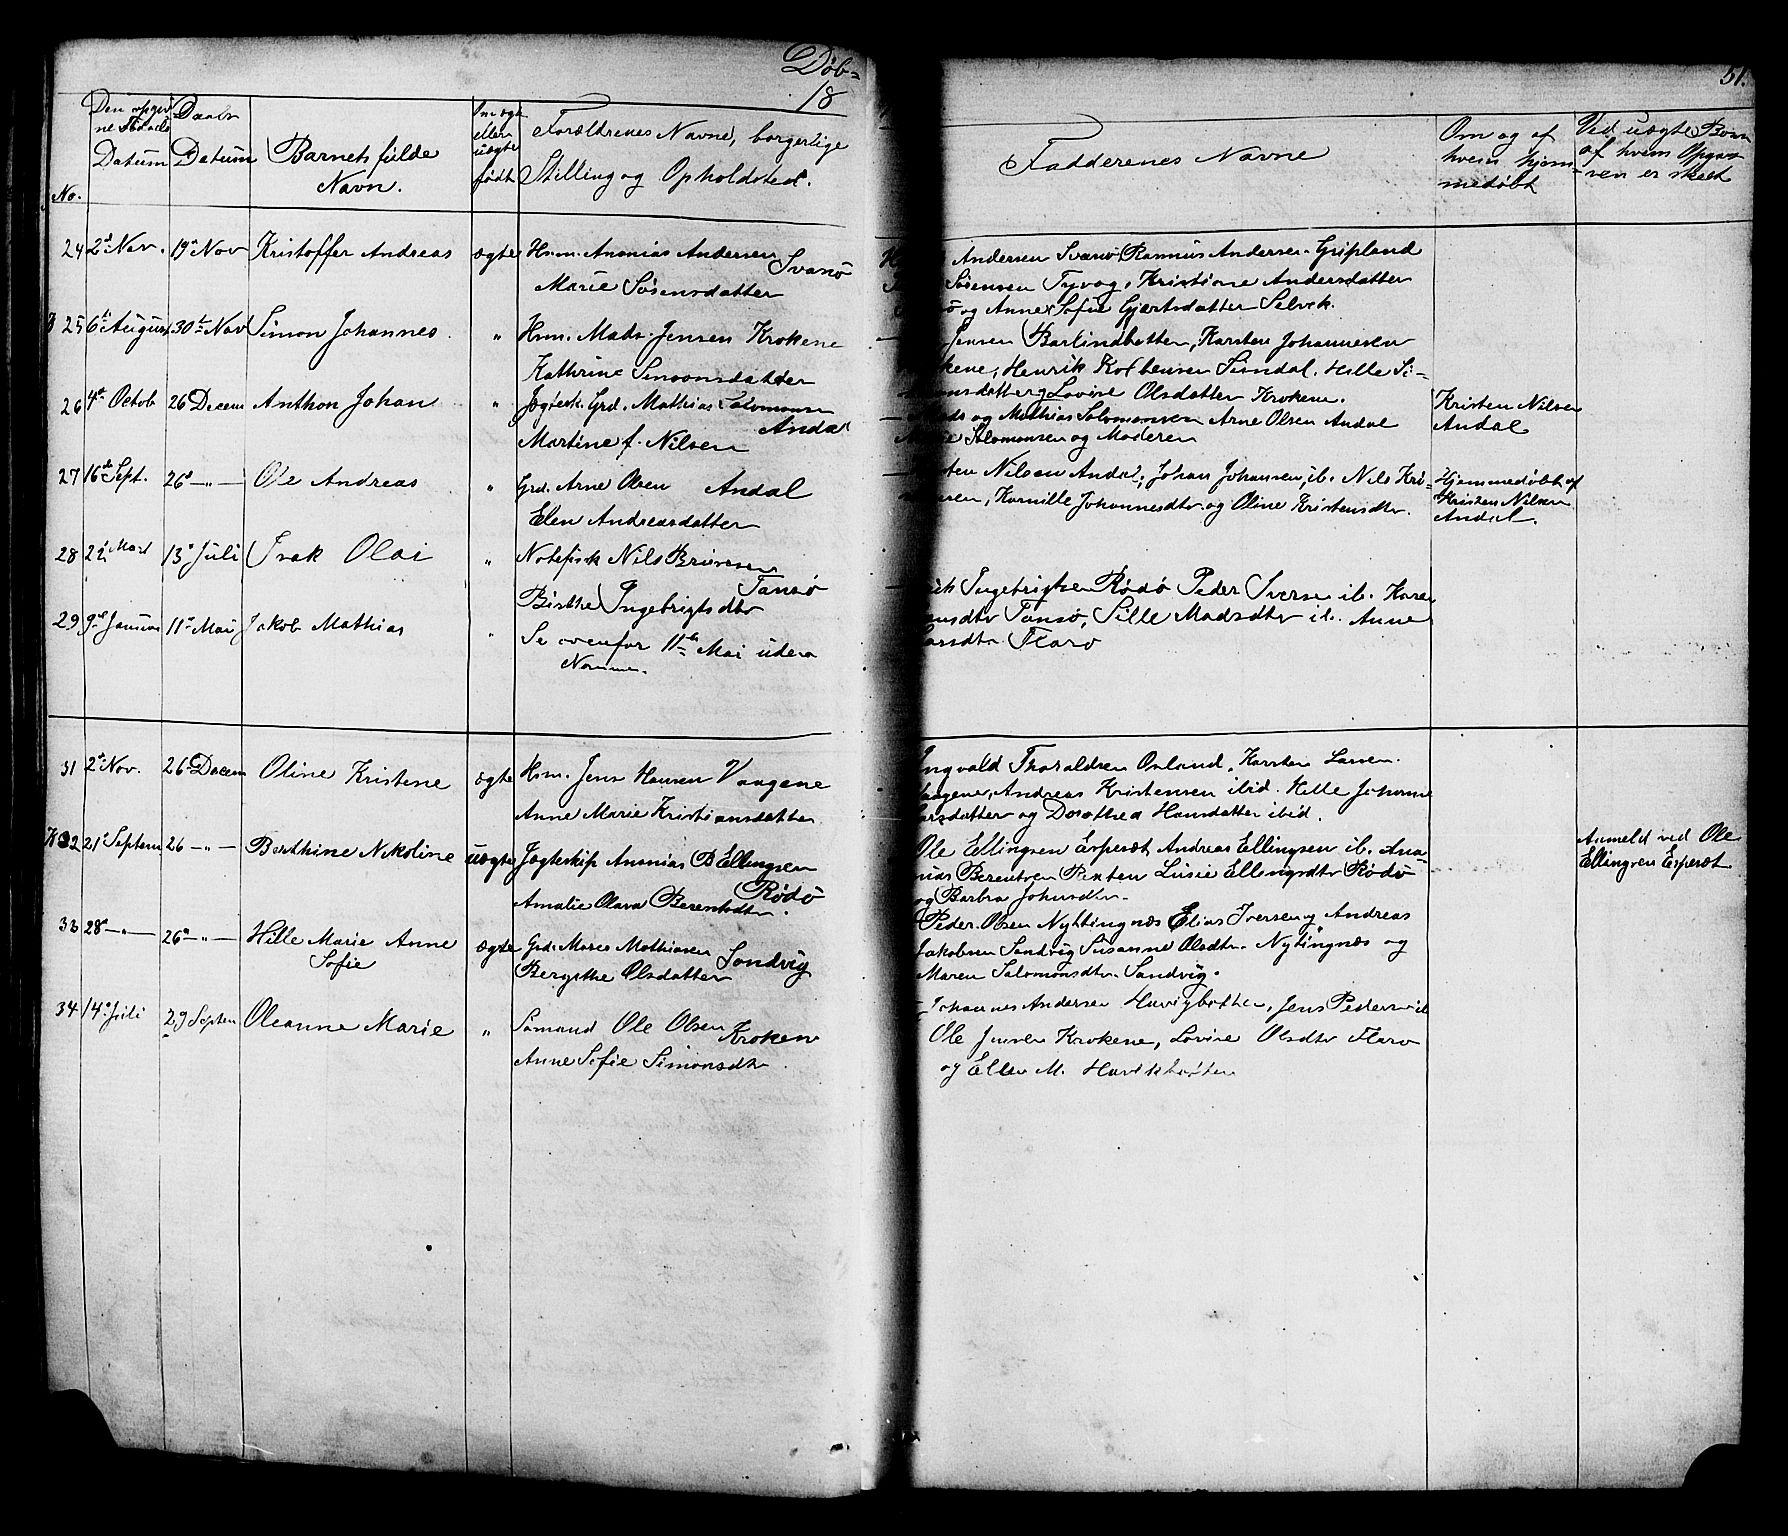 Døb-
18
51.
No.
Den opgiv
ne Fødsels
Datum
Daabs
Datum
Barnets fulde
Navn.
Om ægte
eller
uægte
født
Forældrenes Navne, borgerlige
Stilling og Opholdsted.
Fadderenes Navne
Om og af
hvem hjem-
medøbt
Ved uægte Børn
af hvem Opga-
ven er skeet
24 2d Nov. 19d Nov Kristoffer Andreas ægte Hsm. Ananias Andersen
Svanø
Marie Sørensdatter
Andersen Svanø, Rasmus Andersen Gripland
Sørensen Tyvog, Kristiane Andersdatter
og Anne Sofie Gjertsdatter Selvik.
25 6te August 30te Nov Simon Johannes. " Hsm. Mads Jensen Krokene
Kathrine Simonsdatter
Jensen Barlindbotten, Karsten Johannesen
kene, Henrik Kolbensen Sundal. Hille Si-
monsdatter og Lovise Olsdatter Krokene.
26 4de Octob 26 Decem Anthon Johan " Jægtesk. Grd. Mathias Salomonsen
Andal
Martine f. Nilsen
Mads og Mathias Salomonsen Arne Olsen Andal
Salomonsen og Moderen
Kristen Nilsen
Andal
27 16de Sept. 26d —"— Ole Andreas " Grd. Arne Olsen Andal
Elen Andreasdatter
sten Nilsen Andal, Johan Johansen, ib. Nils Kri-
sen, Kornille Johannesdtr. og Oline Kristensdtr.
Hjemmedøbt af
Kristen Nilsen
Andal.
28 22 Mart 13d Juli Isak Olai " Notefisk Nils Brüvesen
Tansø
Birthe Ingebrigtsdtr
Ingebrigtsen Rødø Peder Iversen ib. Karen
nsdtr Tansø, Sille Madsdtr ib. Anne
Larsdtr Florø
29 9de Januar 11te Mai Jakob Mathias " Se ovenfor 11te Mai uden
Nommer.
31 2d Nov. 26 Decem Oline Kristene ægte Hsm. Jens Hansen Vaagene
Anne Marie Kristiansdatter
Ingvald Tharaldsen Osland, Karsten Larsen
Vaagene, Andreas Kristensen ibid. Hille Johanne
Larsdatter og Dorothea Hansdatter ibid.
32 21d Septem 26 —"— Berthine Nikoline uægte Jægteskip Ananias B Ellingsen
Rødø
Amalie Olava Berentsdtr.
Ole Ellingsen Espesæt Andreas Ellingsen ib. Ana-
nias Berentsen Lusie Ellingsdtr Rødø
og Barbra Johnsdtr.
Anmeld ved Ole
Ellingsen Espesæt
33 28d —"— 26d —"— Hille Marie Anne
Sofie
ægte Grd. Mathiasen
Sandvig
Bergithe Olsdatter
Peder Olsen Nyttingnæs Elias Iversen og Andreas
Jakobsen Sandvig Susanne Olsdtr. Nytingnæs og
Maren Salomonsdtr. Sandvig.
34 14d Juli 29 Septem Oleanne Marie " Sømand Ole Olsen
Kroken
Anne Sofie Simonsdtr.
Johannes Andersen Havigbotten, Jens Pedersen ib
Ole Jensen Krokene, Lovise Olsdtr Florø
og Ellen M. Havikbotten